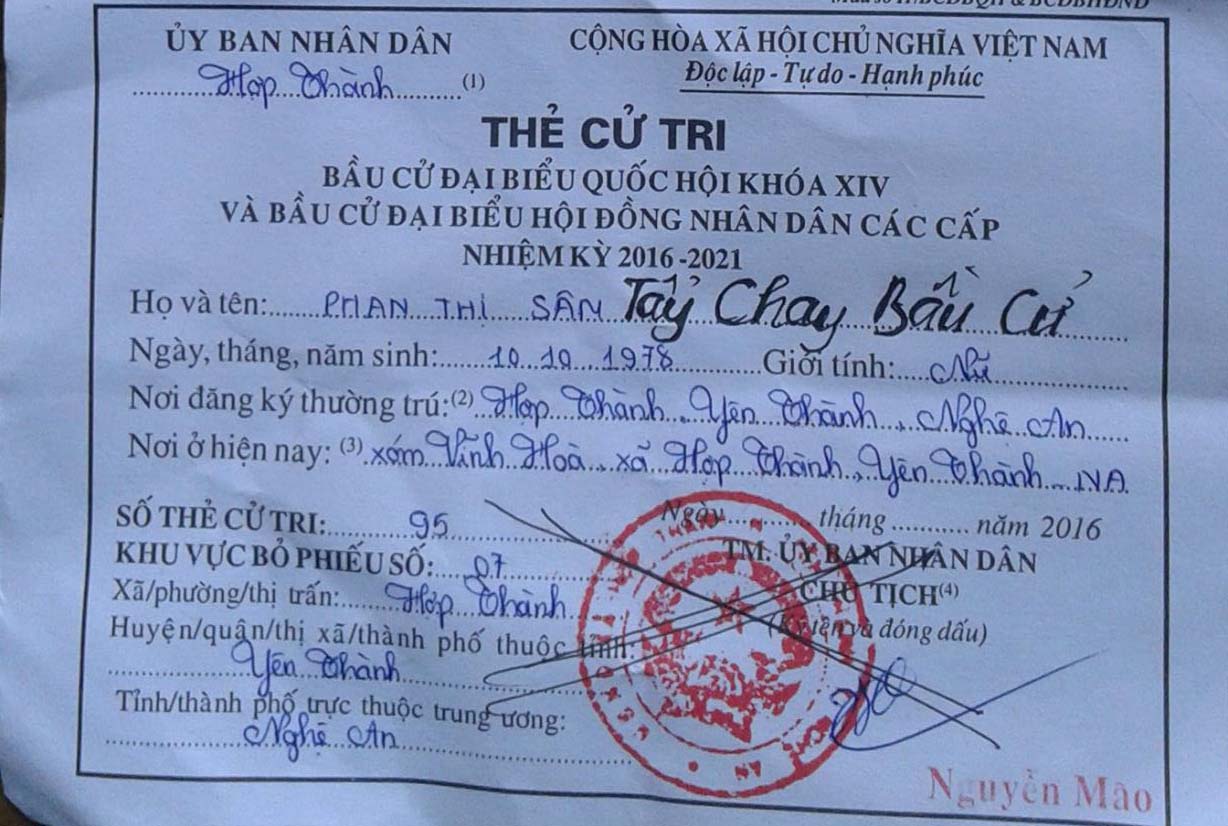 ỦY BAN NHÂN DÂN
Hợp Thành (1)
CỘNG HÒA XÃ HỘI CHỦ NGHĨA VIỆT NAM
Độc lập - Tự do - Hạnh phúc
THẺ CỬ TRI
BẦU CỬ ĐẠI BIỂU QUỐC HỘI KHÓA XIV
VÀ BẦU CỬ ĐẠI BIỂU HỘI ĐỒNG NHÂN DÂN CÁC CẤP
NHIỆM KỲ 2016 -2021
Họ và tên: PHAN THỊ SÂN Tẩy Chay Bầu Cử
Ngày, tháng, năm sinh: 10.10.1978 Giới tính: Nữ
Nơi đăng ký thường trú:(2) Hợp Thành, Yên Thành, Nghệ An
Nơi ở hiện nay: (3) xóm Vĩnh Hoà, xã Hợp Thành, Yên Thành NA
SỐ THẺ CỬ TRI: 95
KHU VỰC BỎ PHIẾU SỐ: 07
Xã/phường/thị trấn: Hợp Thành
Huyện/quận/thị xã/thành phố thuộc tỉnh:
Yên Thành
Tỉnh/thành phố trực thuộc trung ương:
Nghệ An
Ngày tháng năm 2016
TM. ỦY BAN NHÂN DÂN
CHỦ TỊCH(4)
(Ký tên và đóng dấu)
Nguyễn Mão